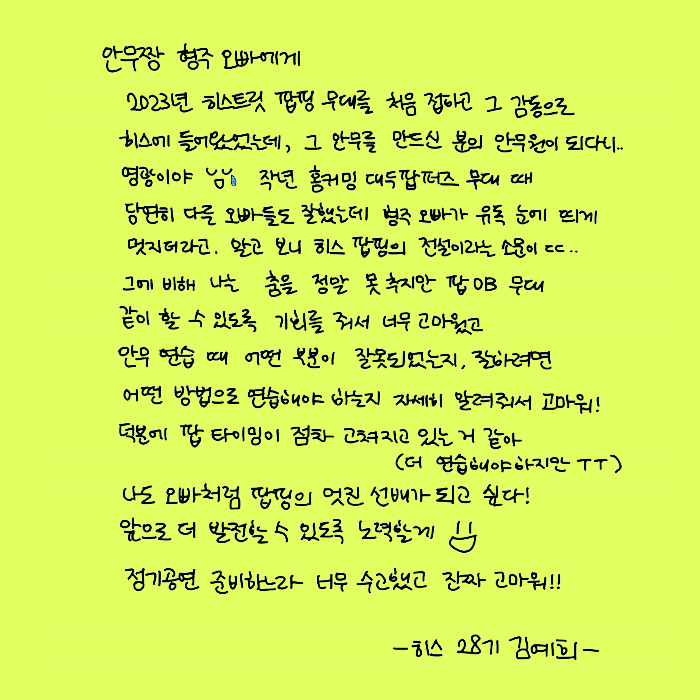 안무짱 형주 오빠에게
2023년 히스트릿 팝핑 무대를 처음 접하고 그 감동으로
히스에 들어왔었는데, 그 안무를 만드신 분의 안무원이 되다니..
영광이야
작년 홈커밍 대두팝퍼즈 무대 때
당연히 다른 오빠들도 잘했는데 형주 오빠가 유독 눈에 띄게
멋지더라고. 알고 보니 히스 팝핑의 전설이라는 소문이 ㄷㄷ..
그에 비해 나는 춤을 정말 못 추지만 팝OB 무대
같이 할 수 있도록 기회를 줘서 너무 고마웠고
안무 연습 때 어떤 부분이 잘못되었는지, 잘하려면
어떤 방법으로 연습해야 하는지 자세히 알려줘서 고마워!
덕분에 팝 타이밍이 점차 고쳐지고 있는 거 같아
(더 연습해야하지만 ㅜㅜ)
나도 오빠처럼 팝핑의 멋진 선배가 되고 싶다!
앞으로 더 발전할 수 있도록 노력할게
정기공연 준비하느라 너무 수고했고 진짜 고마워!!
-히스 28기 김예희-